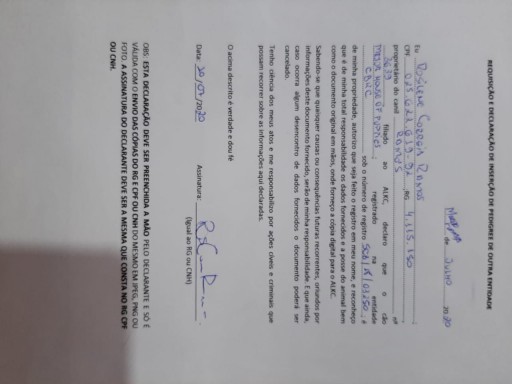 REQUISIÇÃO E DECLARAÇÃO DE INSERÇÃO DE PEDIGREE DE OUTRA ENTIDADE
de Julho 2020
Eu Rosilene Correa Ramos
CPF RG 4.115.150
proprietário do canil Ramos nº
3633 filiado ao ALKC, declaro que o cão
registrado na entidade
CBKC sob o número de registro é
de minha propriedade, autorizo que seja feito o registro em meu nome, e reconheço
que é de minha total responsabilidade os dados fornecidos e a posse do animal bem
como o documento original em mãos, onde forneço a cópia digital para o ALKC.
Sabendo-se que quaisquer causas ou consequências futuras recorrentes, oriundos por
informações deste documento fornecido, serão de minha responsabilidade. E que ainda,
caso ocorra algum desencontro de dados fornecidos o documento poderá ser
cancelado.
Tenho ciência dos meus atos e me responsabilizo por ações cíveis e criminais que
possam recorrer sobre as informações aqui declaradas.
O acima descrito é verdade e dou fé
Data: 20/07/2020 Assinatura:
(Igual ao RG ou CNH)
OBS: ESTA DECLARAÇÃO DEVE SER PREENCHIDA A MÃO PELO DECLARANTE E SÓ É
VÁLIDA COM O ENVIO DAS CÓPIAS DO RG E CPF OU CNH DO MESMO EM JPEG, PNG OU
FOTO. A ASSINATURA DO DECLARANTE DEVE SER A MESMA QUE CONSTA NO RG CPF
OU CNH.